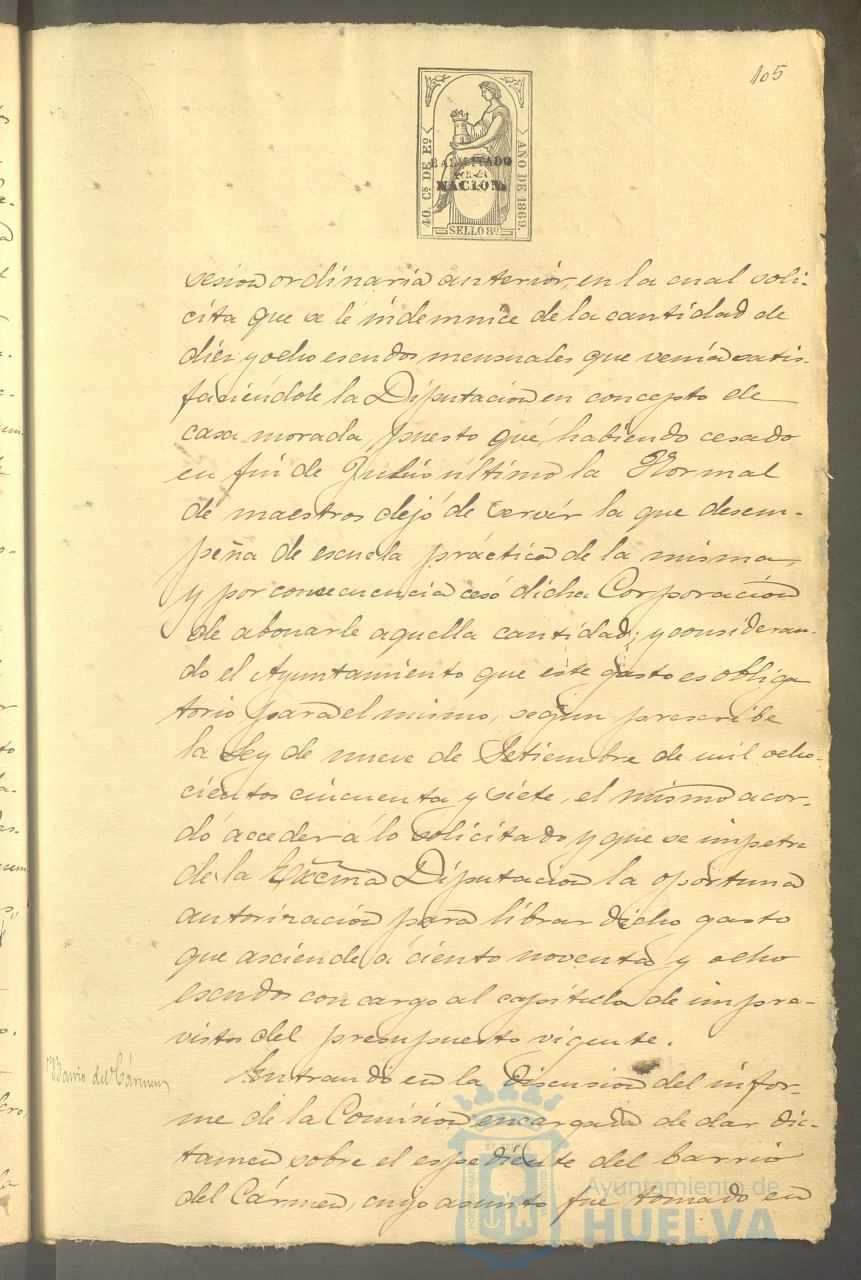 105
40. Cs DE Eo
AÑO DE 1869.
HABILITADO
POR LA
NACION.
SELLO 8º
sesion ordinaria anterior, en la cual soli-
cita que se le indemnice de la cantidad de
diez y ocho escudos mensuales que venia satis-
faciéndole la Diputacion en concepto de
casa morada, puesto que, habiendo cesado
en fin de Julio último la Normal
de maestros dejó de servir la que desem-
peña de escuela práctica de la misma,
y por consecuencia cesó dicha Corporacion
de abonarle aquella cantidad; y consideran-
do el Ayuntamiento que este gasto es obliga
torio para el mismo, segun prescribe
la Ley de nueve de Setiembre de mil ocho-
cientos cincuenta y siete, el mismo acor-
dó acceder á lo solicitado y que se impetre
de la Excma Diputacion la oportuna
autorizacion para librar dicho gasto
que asciende á ciento noventa y ocho
escudos con cargo al capítulo de impre-
vistos del presupuesto vigente.
Barrio del Cármen
Entrando en la discusion del infor-
me de la Comision encargada de dar dic-
tamen sobre el espediente del barrio
del Cármen, cuyo asunto fue tomado en
Ayuntamiento de
HUELVA